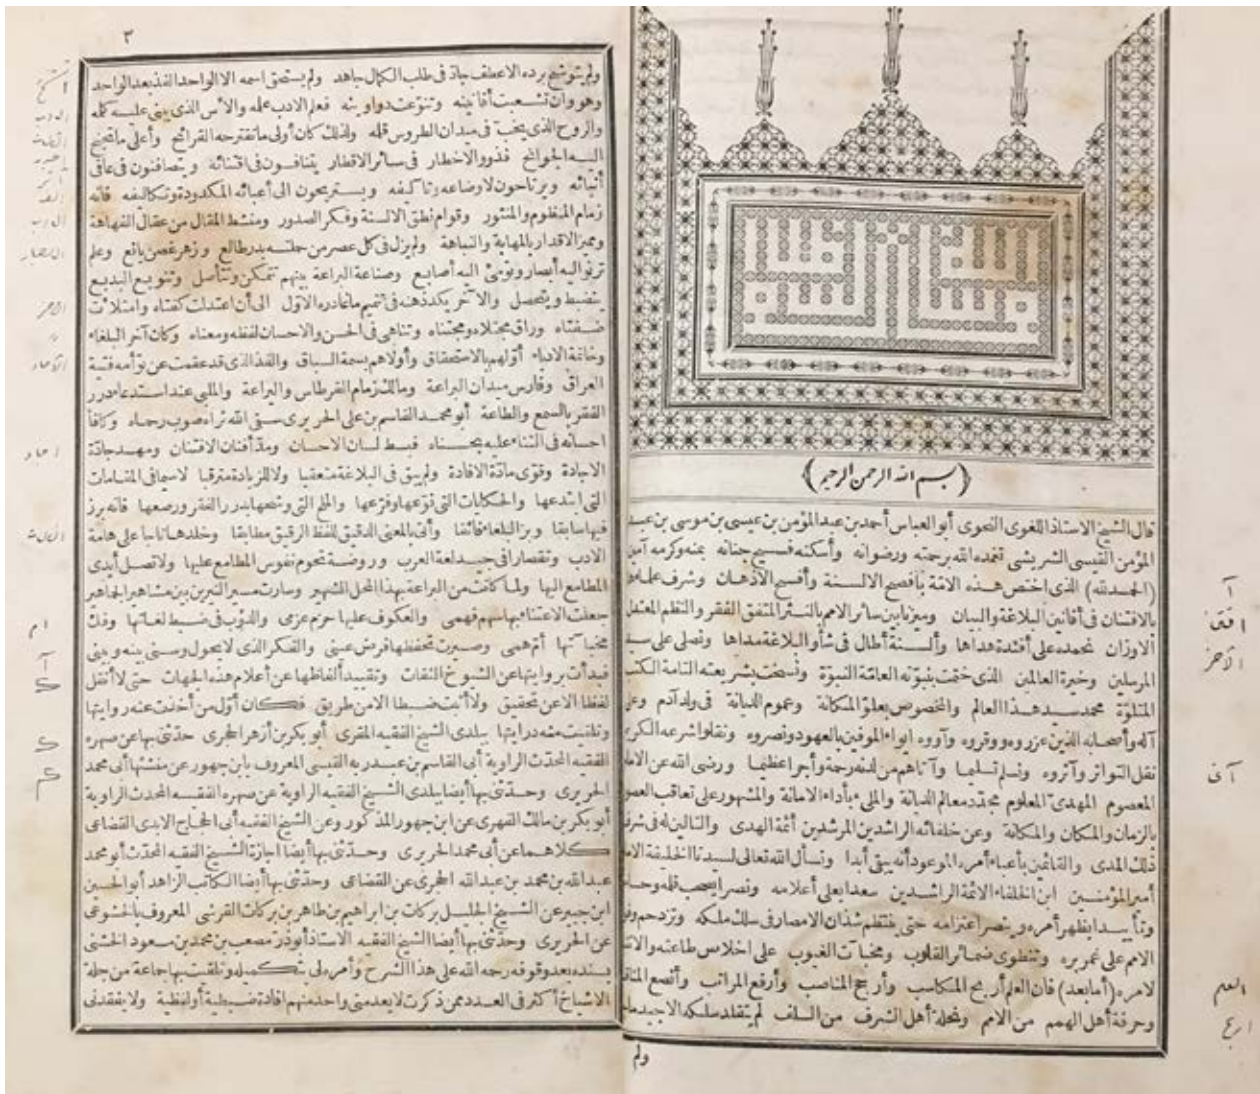 (بسم الله الرحمن الرحيم)
قال الشيخ الاستاذ اللغوى النحوى أبو العباس أحمد بن عبد المؤمن بن عيسى بن موسى بن عبد
المؤمن القيسى الشريشى تغمده الله برحمته ورضوانه وأسكنه فسيح جنانه بمنه وكرمه آمين
(الحمد لله) الذى اختص هذه الامّة بأفصح الالسنة وأفسح الاذهان وشرف علماءها
بالافتنان فى أفانين البلاغة والبيان وميزنا بين سائر الامم بالنثر المتفق الفقر والنظم المعتدل
الاوزان نحمده على أفئدة هداها وألسنة أطال فى شأو البلاغة مداها ونصلى على سيد
المرسلين وخيرة العالمين الذى ختمت بنبوّته العامّة النبوّة ونسخت بشريعته التامة الكتب
المتلوّة محمد سيد هذا العالم والمخصوص بعلوّ المكانة وعموم الديانة فى ولد آدم وعلى
آله وأصحابه الذين عزروه ووقروه وآووه ايواء الموفين بالعهود ونصروه ونقلوا شرعه الكريم
نقل التواتر وآثروه ونسلم تسليما وآتاهم من لدنه رحمة وأجرا عظيما ورضى الله عن الامام
المعصوم المهدىّ المعلوم مجدّد معالم الديانة والملىء بأداء الامانة والمشهور على تعاقب العصور
بالزمان والمكان والمكانة وعن خلفائه الراشدين المرشدين أئمة الهدى والتالين له فى شرف
ذلك المدى والقائمين بأعباء أمره الموعود أنه يبقى أبدا ونسأل الله تعالى لسيدنا الخليفة الامام
أمير المؤمنين ابن الخلفاء الائمة الراشدين سعدا يعلى أعلامه ونصرا يصحب قلمه وحسامه
وتأييدا يظهر أمره وينصر اعتزامه حتى ينتظم شذان الامصار فى سلك ملكه وتزدحم وفود
الامم على غمر بره وتنطوى ضمائر القلوب ومخبآت الغيوب على اخلاص طاعته والائتمار
لامره (أما بعد) فان العلم أربح المكاسب وأرجح المناصب وأرفع المراتب وأنصع المناقب
وحرفة أهل الهمم من الامم ونحلة أهل الشرف من السلف لم يتقلد سلكه الاجيد ماجد
ولم
٣
ولم يتوشح برده الاعطف جادّ فى طلب الكمال جاهد ولم يستحق اسمه الا الواحد الفذ بعد الواحد
وهو وان تشعبت أفانينه وتنوّعت دواوينه فعلم الادب علمه والأس الذى يبنى عليه كلمه
والروح الذى يخبّ فى ميدان الطروس قلمه ولذلك كان أولى ما تقترحه القرائح وأعلى ما تجنح
اليه الجوانح فذوو الاخطار فى سائر الاقطار يتنافسون فى اقتنائه ويتصافنون فى عافى
أنبائه ويرتاحون لاوضاعه وتآليفه ويستريحون الى أعبائه المكدودة وتكاليفه فانه
زمام المنظوم والمنثور وقوام نطق الالسنة وفكر الصدور ومنشط المقال من عقال الفهاهة
ومميز الاقدار بالمهابة والنباهة ولم يزل فى كل عصر من حملته بدر طالع وزهر غصن يانع وعلم
ترنو اليه أبصار وتومئ اليه أصابع وصناعة البراعة بينهم تتمكن وتتأصل وتنويع البديع
ينضبط ويتحصل والآخر يكدّ ذهنه فى تتميم ما غادره الاوّل الى أن اعتدلت كفتاه وامتلأت
ضفتاه وراق مجتلاه ومجتناه وتناهى فى الحسن والاحسان لفظه ومعناه وكان آخر البلغاء
وخاتمة الادباء أوّلهم بالاستحقاق وأولاهم بسمة السباق والفذ الذى قد عقمت عن توأمه فتية
العراق وفارس ميدان البراعة ومالك زمام القرطاس واليراعة والملبى عند استدعاء درر
الفقر بالسمع والطاعة أبو محمد القاسم بن على الحريرى سقى الله ثراه صوب رحماه وكافأ
احسانه فى الثناء عليه بحسناه فبسط لسان الاحسان ومدّ أفنان الافتنان ومهد جادّة
الاجادة وقوّى مادّة الافادة ولم يبق فى البلاغة متعقبا ولا للزيادة مترقبا لا سيما فى المقامات
التى ابتدعها والحكايات التى نوّعها وفرّعها والملح التى وشعها بدرر الفقر ورصعها فانه برز
فيها سابقا وبز البلغاء فائقا وأتى بالمعنى الدقيق للفظ الرقيق مطابقا وخلدها تاجا على هامة
الادب وتقصارا فى جيد لغة العرب وروضة تحوم نفوس المطامع عليها ولا تصل أيدى
المطامع اليها ولما كانت من البراعة بهذا المحل الشهير وسارت مسير النيرين بين مشاهير الجماهير
جعلت الاعتناء بها سهم فهمى والعكوف عليها حزم عزمى والدؤب فى ضبط لغاتها وفك
مخبآتها أهمّ همى وصيرت تحفظها فرض عينى والفكر الذى لا يحول وسنى بينه وبينى
فبدأت بروايتها عن الشيوخ الثقات وتقييد ألفاظها عن أعلام هذه الجهات حتى لا أنقل
لفظا الا عن تحقيق ولا أثبت ضبطا الا من طريق فكان أوّل من أخذت عنه روايتها
وتلقيت منه درايتها ببلدى الشيخ الفقيه المقرى أبو بكر بن أزهر الحجرى حدّثنى بها عن صهره
الفقيه المحدّث الراوية أبى القاسم بن عبد ربه القيسى المعروف بابن جهور عن منشئها أبى محمد
الحريرى وحدّثنى بها أيضا ببلدى الشيخ الفقيه الراوية عن صهره الفقيه المحدث الراوية
أبو بكر بن مالك الفهرى عن ابن جهور المذكور وعن الشيخ الفقيه أبى الحجاج الابدى القضاعى
كلاهما عن أبى محمد الحريرى وحدّثنى بها أيضا اجازة الشيخ الفقيه المحدّث أبو محمد
عبد الله بن محمد بن عبد الله الحجرى عن القضاعى وحدّثنى بها أيضا الكاتب الزاهد أبو الحسين
ابن جبير عن الشيخ الجليل بركات بن ابراهيم بن طاهر بن بركات القرشى المعروف بالخشوعى
عن الحريرى وحدّثنى بها أيضا الشيخ الفقيه الاستاذ أبو ذرّ مصعب بن محمد بن مسعود الخشنى
بسنده بعد وقوفه رحمه الله على هذا الشرح وأمره لى بتكميله وتلقيت بها جماعة من جلة
الاشياخ أكثر فى العدد ممن ذكرت لا يعدمنى واحد منهم افادة ضبطية أو لفظية ولا يفقدنى